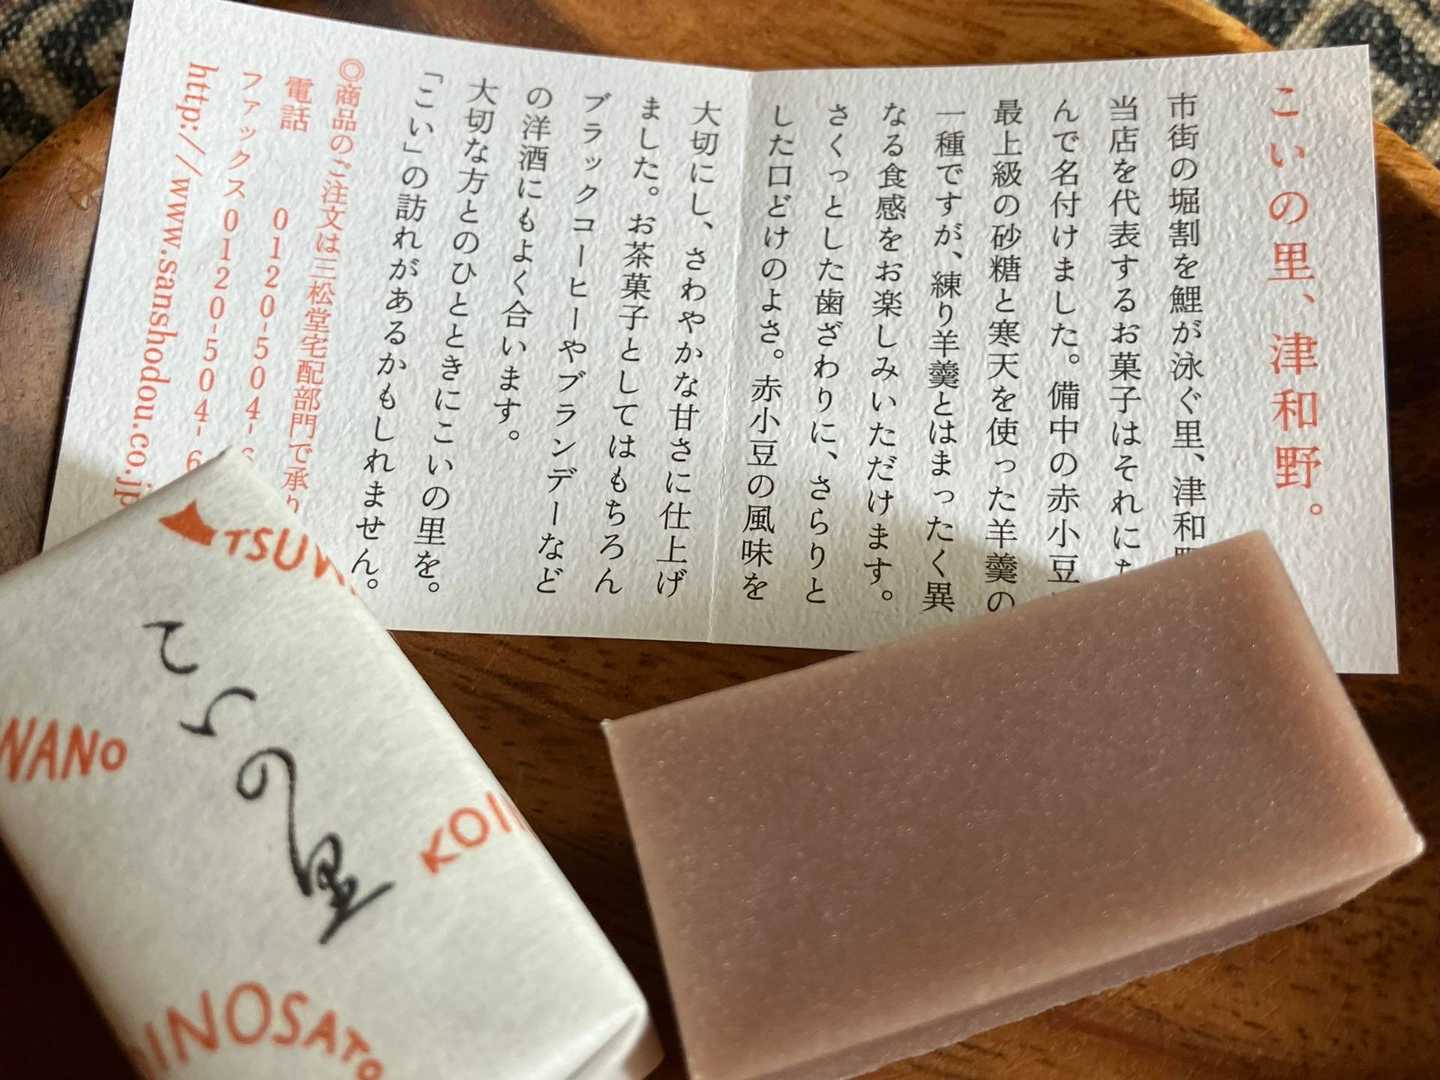 こいの里、津和野。
市街の堀割を鯉が泳ぐ里、津和野
当店を代表するお菓子はそれにち
んで名付けました。備中の赤小豆
最上級の砂糖と寒天を使った羊羹の
一種ですが、練り羊羹とはまったく異
なる食感をお楽しみいただけます。
さくっとした歯ざわりに、さらりと
した口どけのよさ。赤小豆の風味を
大切にし、さわやかな甘さに仕上げ
ました。お茶菓子としてはもちろん
ブラックコーヒーやブランデーなど
の洋酒にもよく合います。
大切な方とのひとときにこいの里を。
「こい」の訪れがあるかもしれません。
◎商品のご注文は三松堂宅配部門で承り
電話 0120-504-
ファックス0120-504-6
http://www.sanshodou.co.jp
TSUW
こいの里
WANO
KOIN
OINOSATO